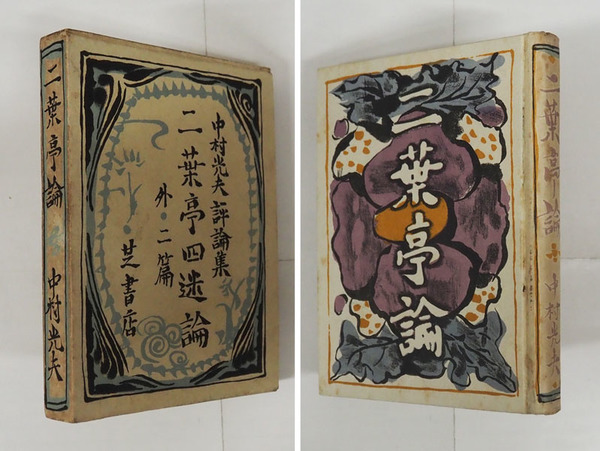 二葉亭論
中村光夫
中村光夫評論集
二葉亭四迷論
外・二篇
芝書店
二葉亭論
二葉亭論
中村光夫